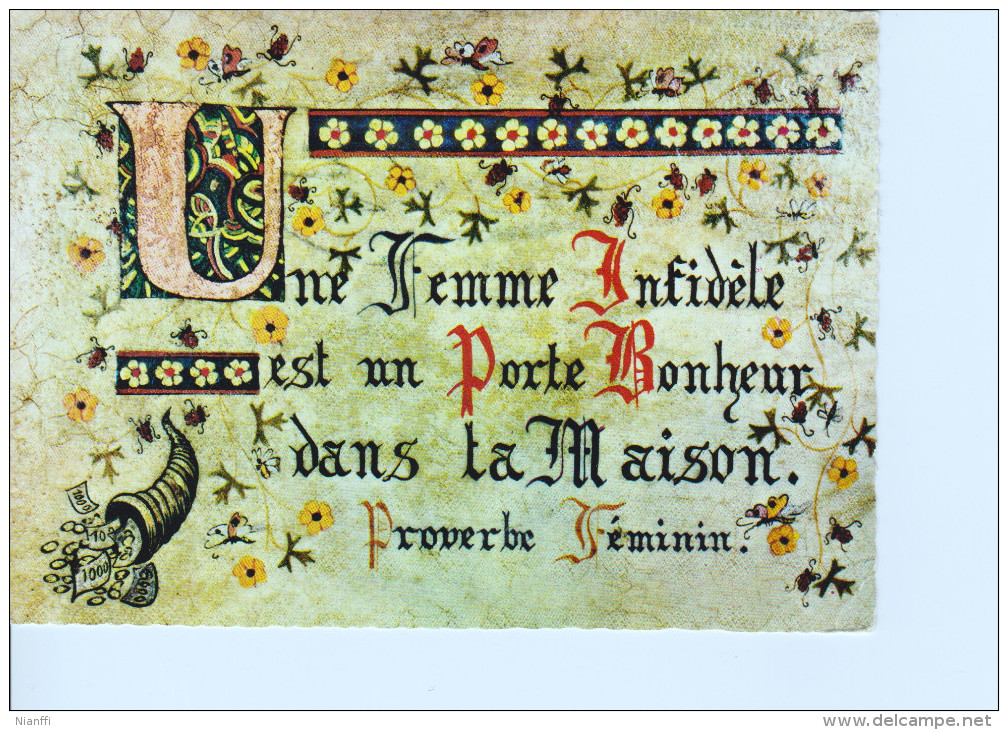 Une Femme Infidèle
est un Porte Bonheur
dans ta Maison.
Proverbe Féminin.
1000
10
1000
1000
Nianffi
www.delcampe.net